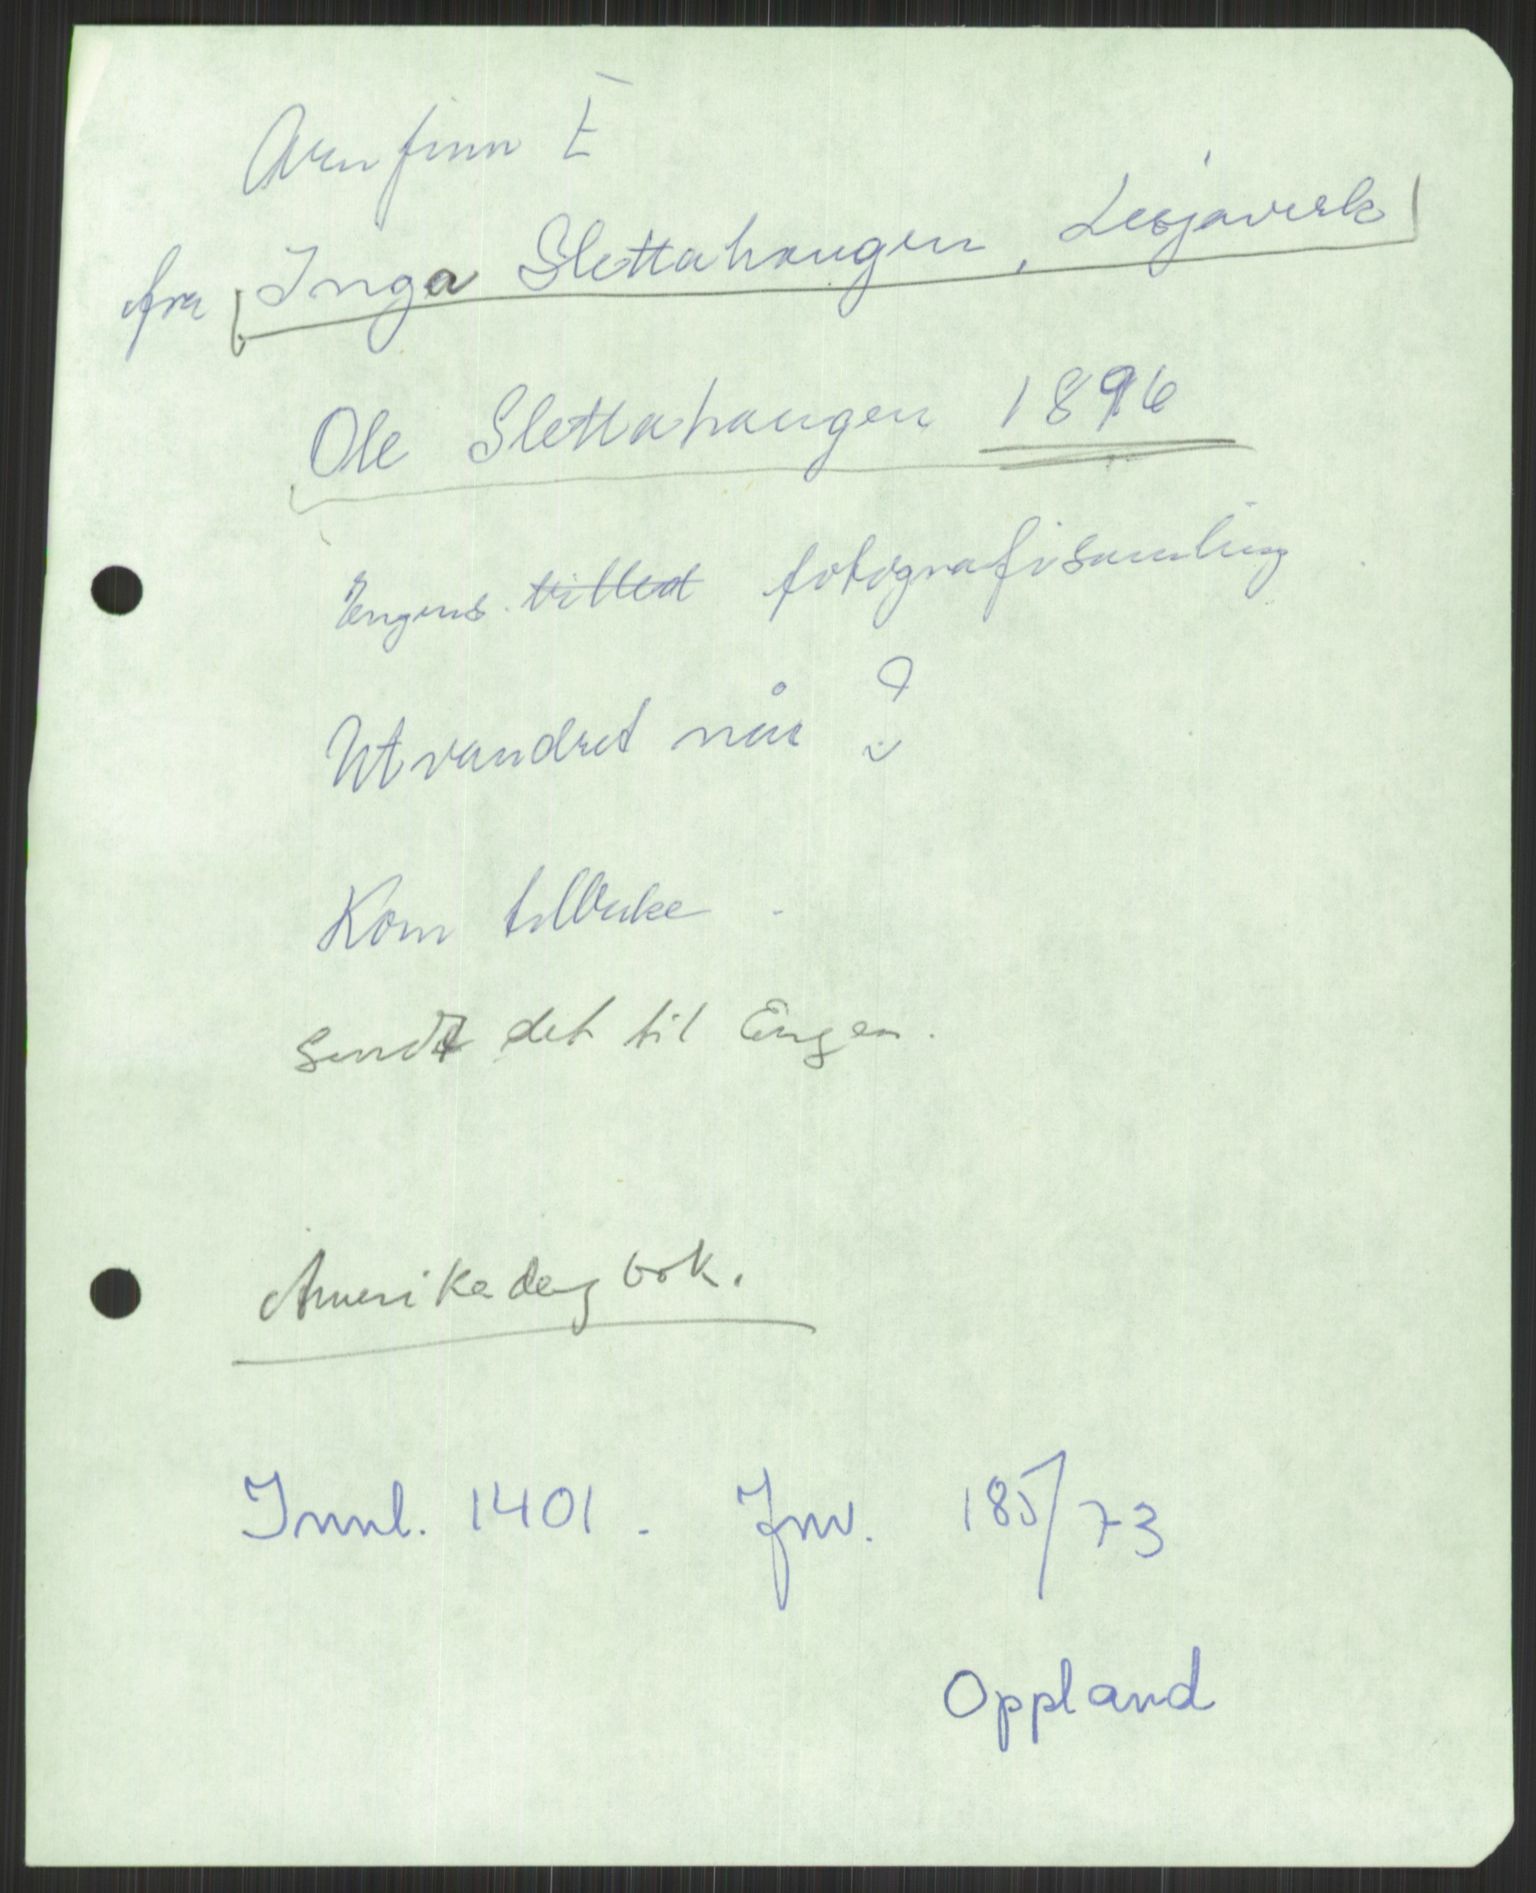 Arnfinn E
fra Inga Slettahaugen, Lesjaverk
Ole Slettahaugen 1896
Engens fotografisamling
Utvandret når ?
Kom tilbake
sendt det til Engen.
Amerikadagbok.
Innl. 1401. Jnv. 185/73
Oppland